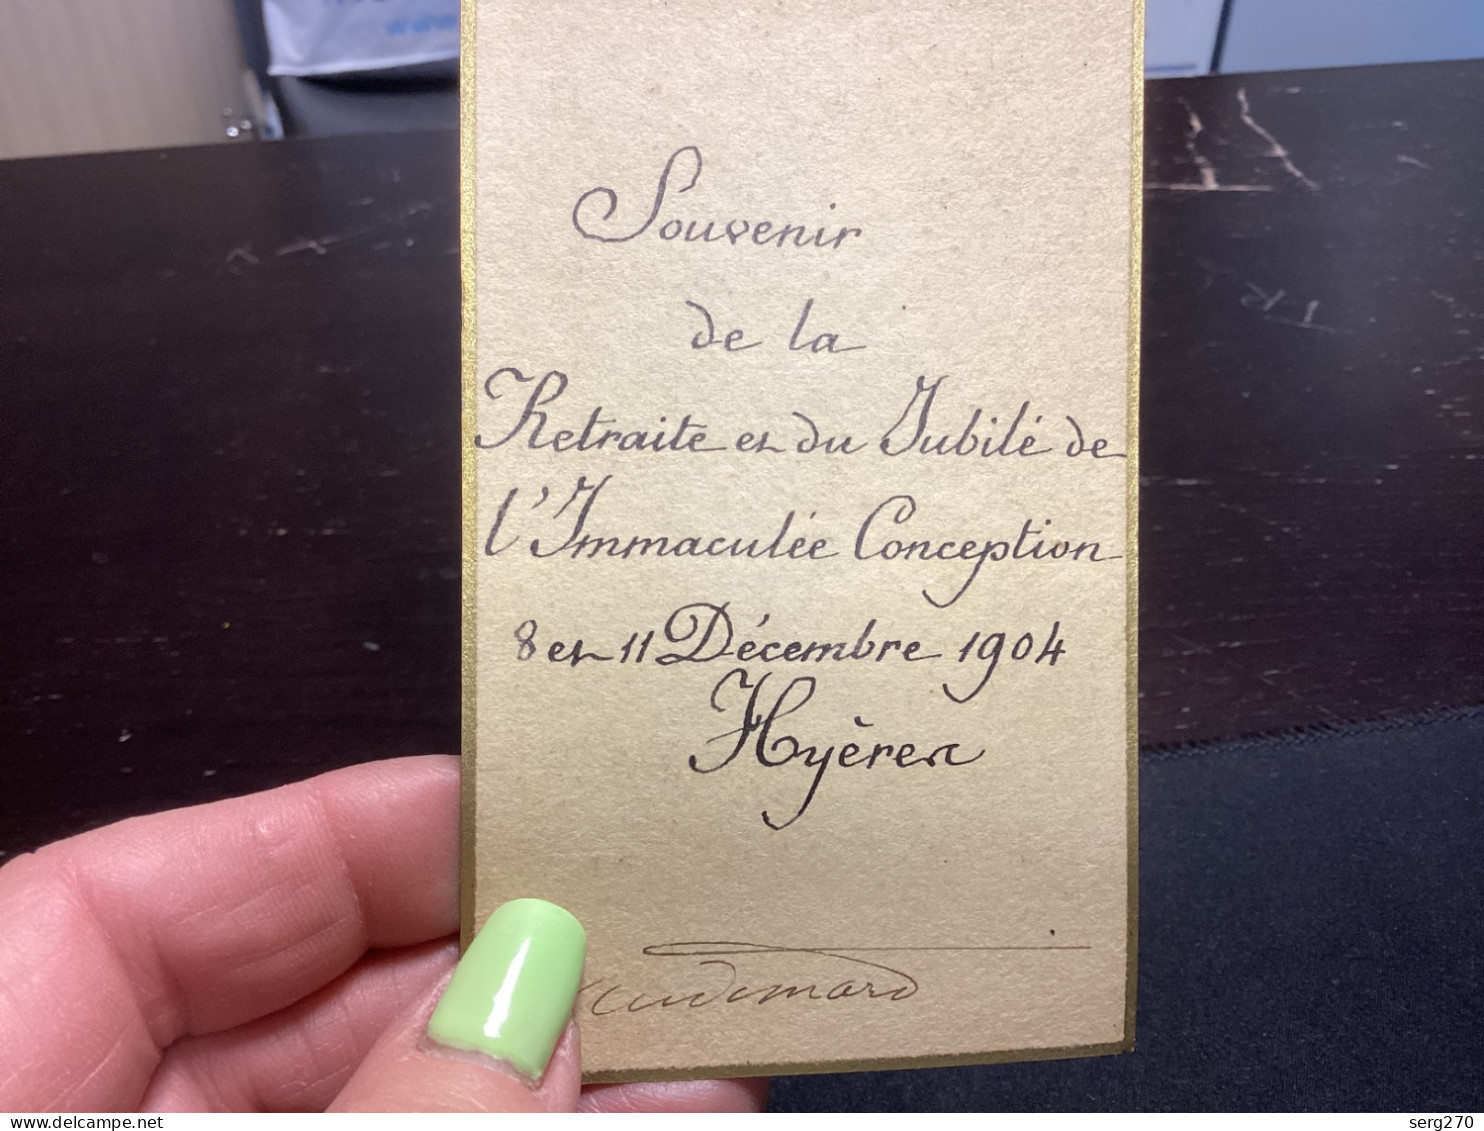 Souvenir
de la
Retraite et du Jubilé de
l'Immaculée Conception
8 et 11 Décembre 1904
Hyères
delcampe.net
serg270